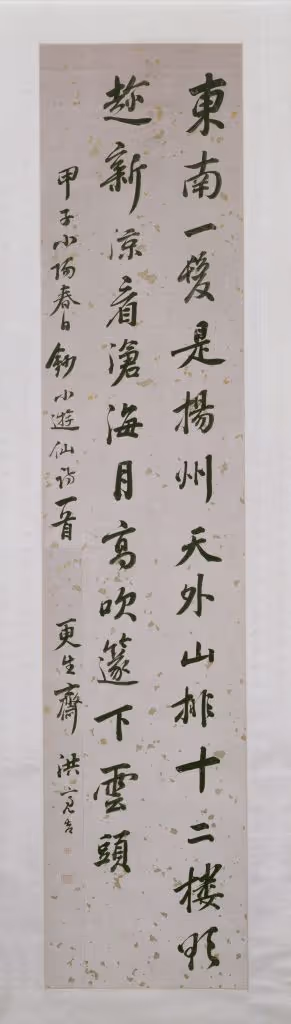 東南一髮是揚州天外山排十二樓欲
趁新涼看滄海月高吹篴下雲頭
甲子小陽春日鈔小遊仙詩一首 更生齋 洪亮吉